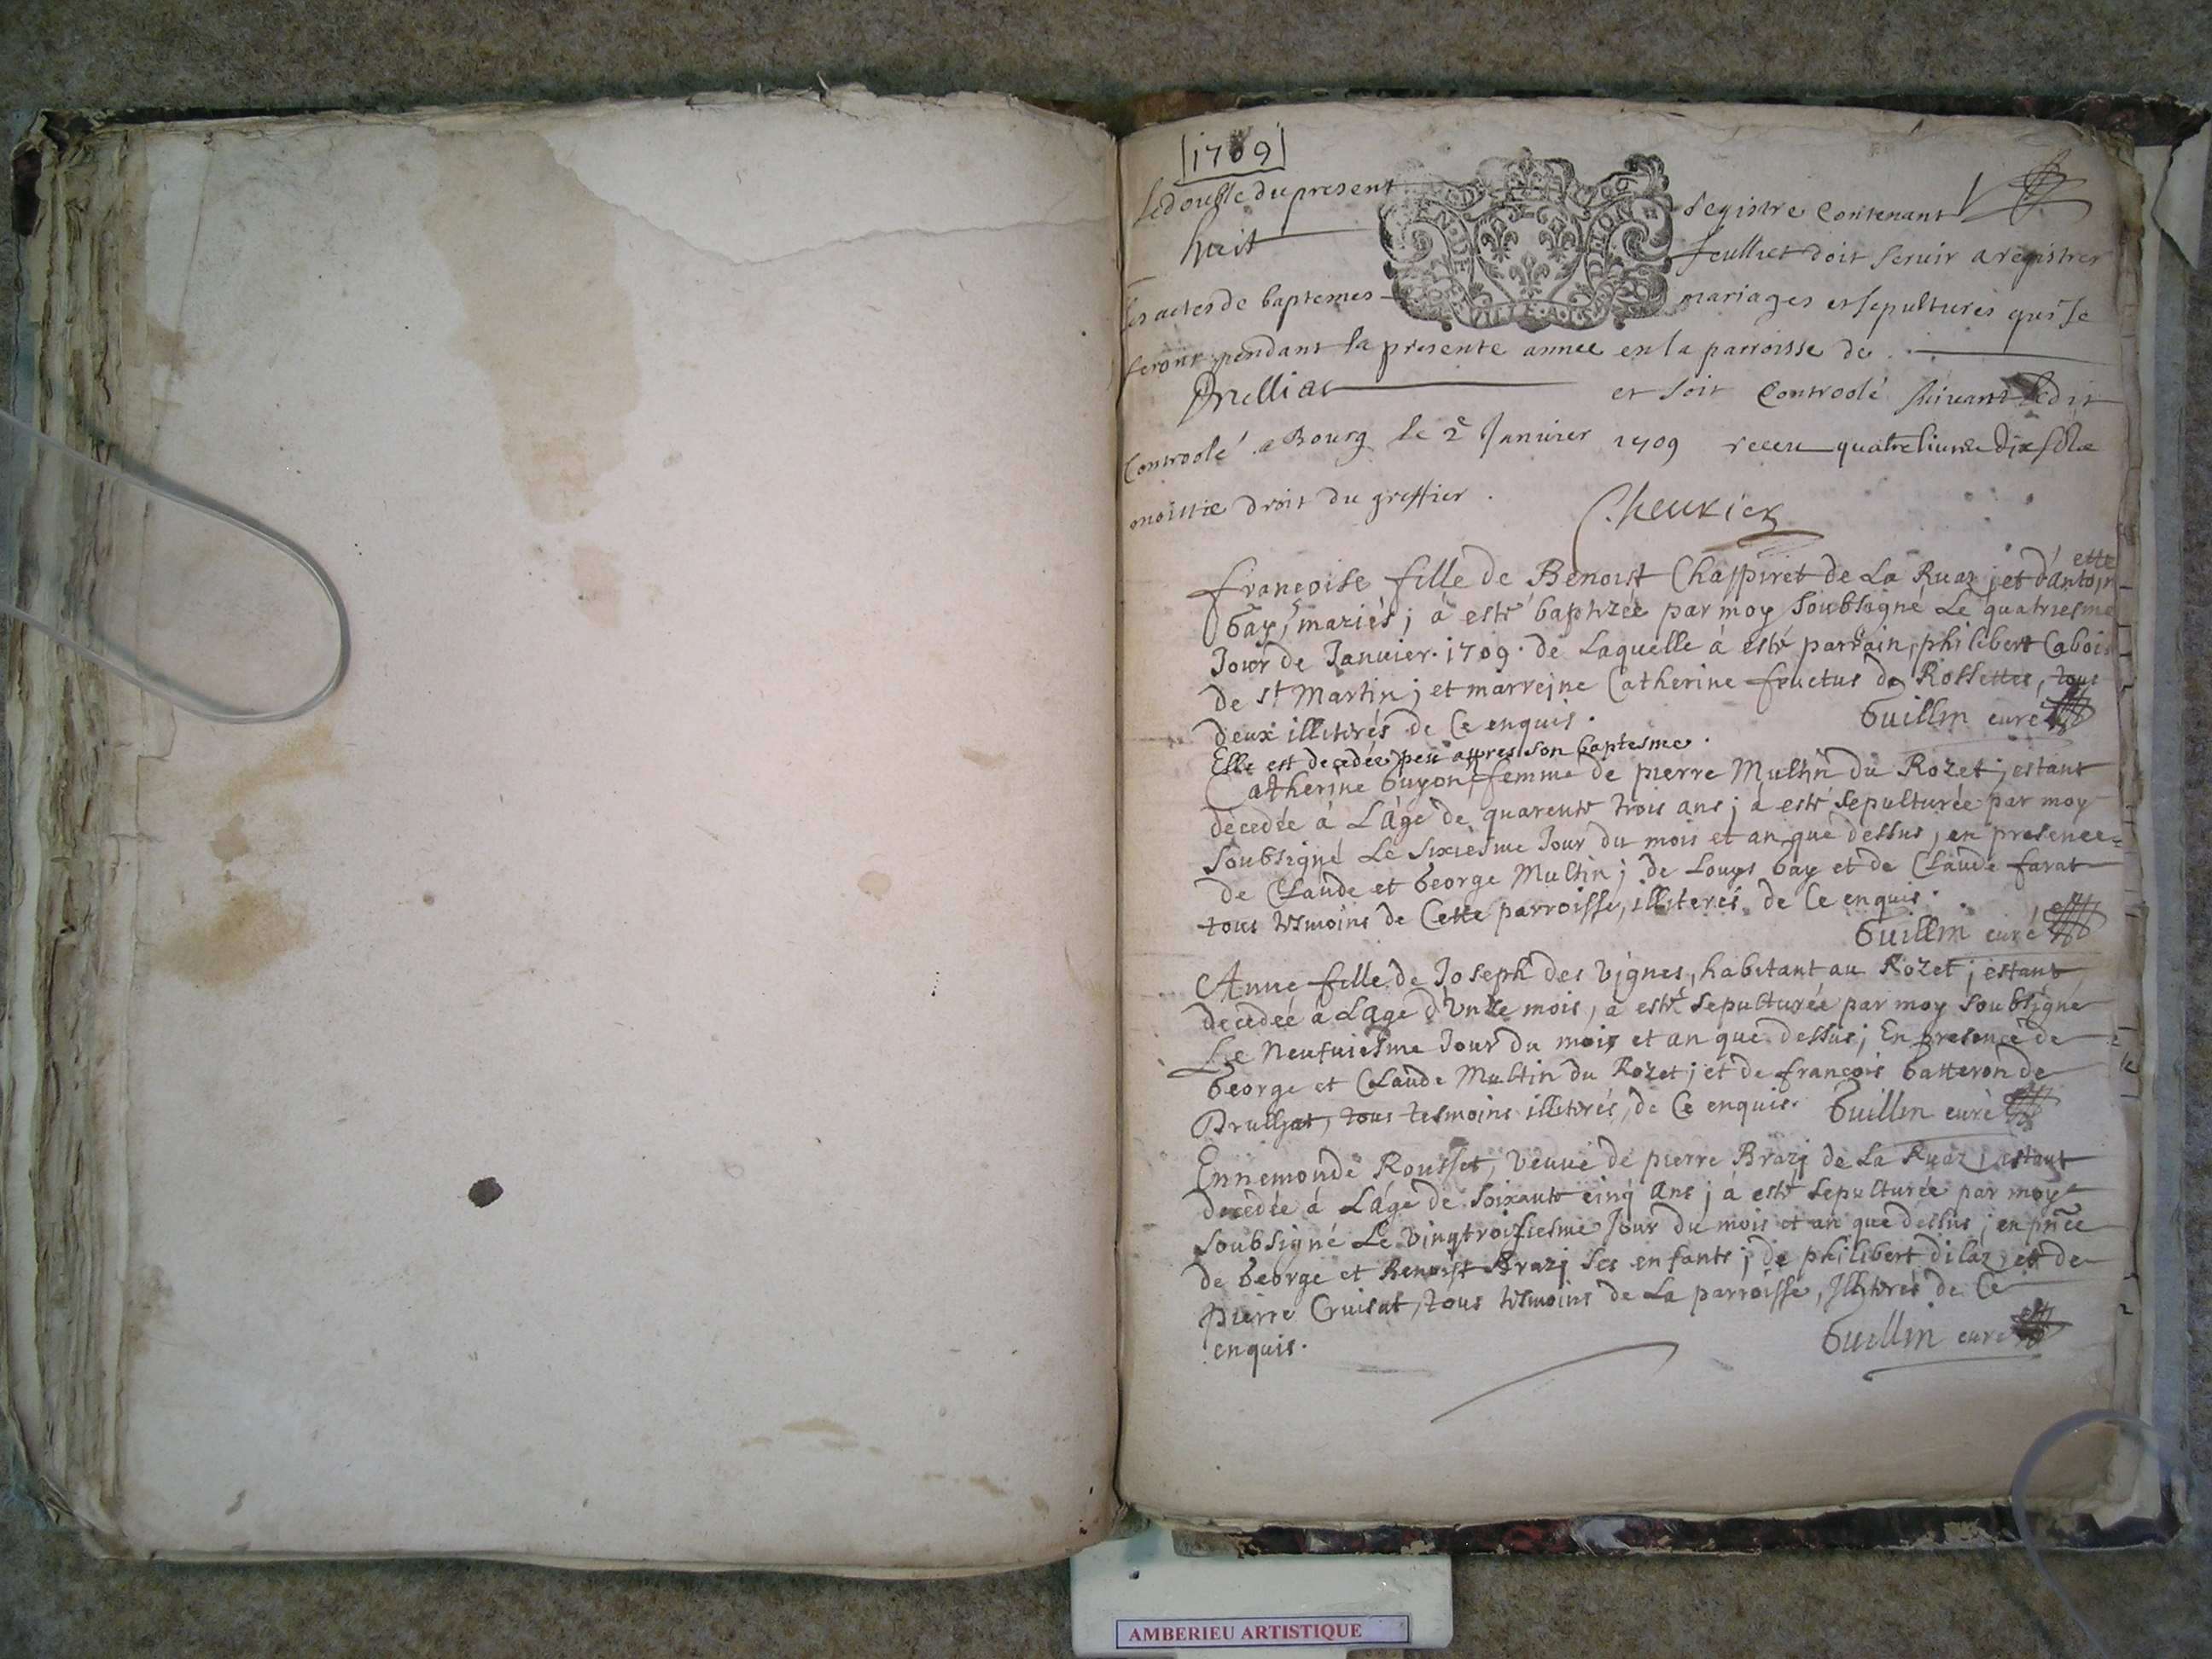 1709
Le double du present registre Contenant
huit feulliet doit servir a registrer
les actes de baptemes mariages et sepultures qui se
feront pendant la presente annee en la parroisse de
Drulliat et soit Controolé suivant ledit
Controolé a Bourg le 2e Janvier 1709 receu quatre livres dix sols
moittie droit du greffier.
francoise fille de Benoist Chappiret de La Ruaz ; et d'antoinette
Gay, mariés ; à esté baptizée par moy soubsigné Le quatriesme
Jour de Janvier. 1709. de Laquelle à esté parrain, philibert Cabois
de st Martin ; et marreine Catherine fructus de Rossettes, tous
deux illiterés de Ce enquis.
Guillin curé
Elle est decedée peu apres son baptesme.
Catherine Guyon, femme de pierre Multin du Rozet ; estant
decedée à L'âge de quarente trois ans ; à esté sepulturée par moy
soubsigné Le sixiesme Jour du mois et an que dessus, en presence
de Claude et George Multin ; de Louys Gay et de Claude farat
tous tesmoins de Cette parroisse, illiterés de Ce enquis.
Guillin curé
Anne fille de Joseph des vignes, habitant au Rozet ; estant
decedée à L'age d'Unze mois, à esté sepulturée par moy soubsigné
Le Neufuiesme Jour du mois et an que dessus ; En presence de
George et Claude Multin du Rozet ; et de francois Gatteron de
Drulliat, tous tesmoins illiterés, de Ce enquis. Guillin curé
Ennemonde Rousset, veuve de pierre Brazj de La Ruaz ; estant
decedée à L'âge de soixante cinq ans ; à esté sepulturée par moy
soubsigné Le vingtroiziesme Jour du mois et an que dessus ; en pnce
de George et Benoist Brazj ses enfants ; de philibert dilaz, et de
pierre Cruisat, tous tesmoins de La parroisse, Illiterés de Ce
enquis.
Guillin curé
AMBERIEU ARTISTIQUE